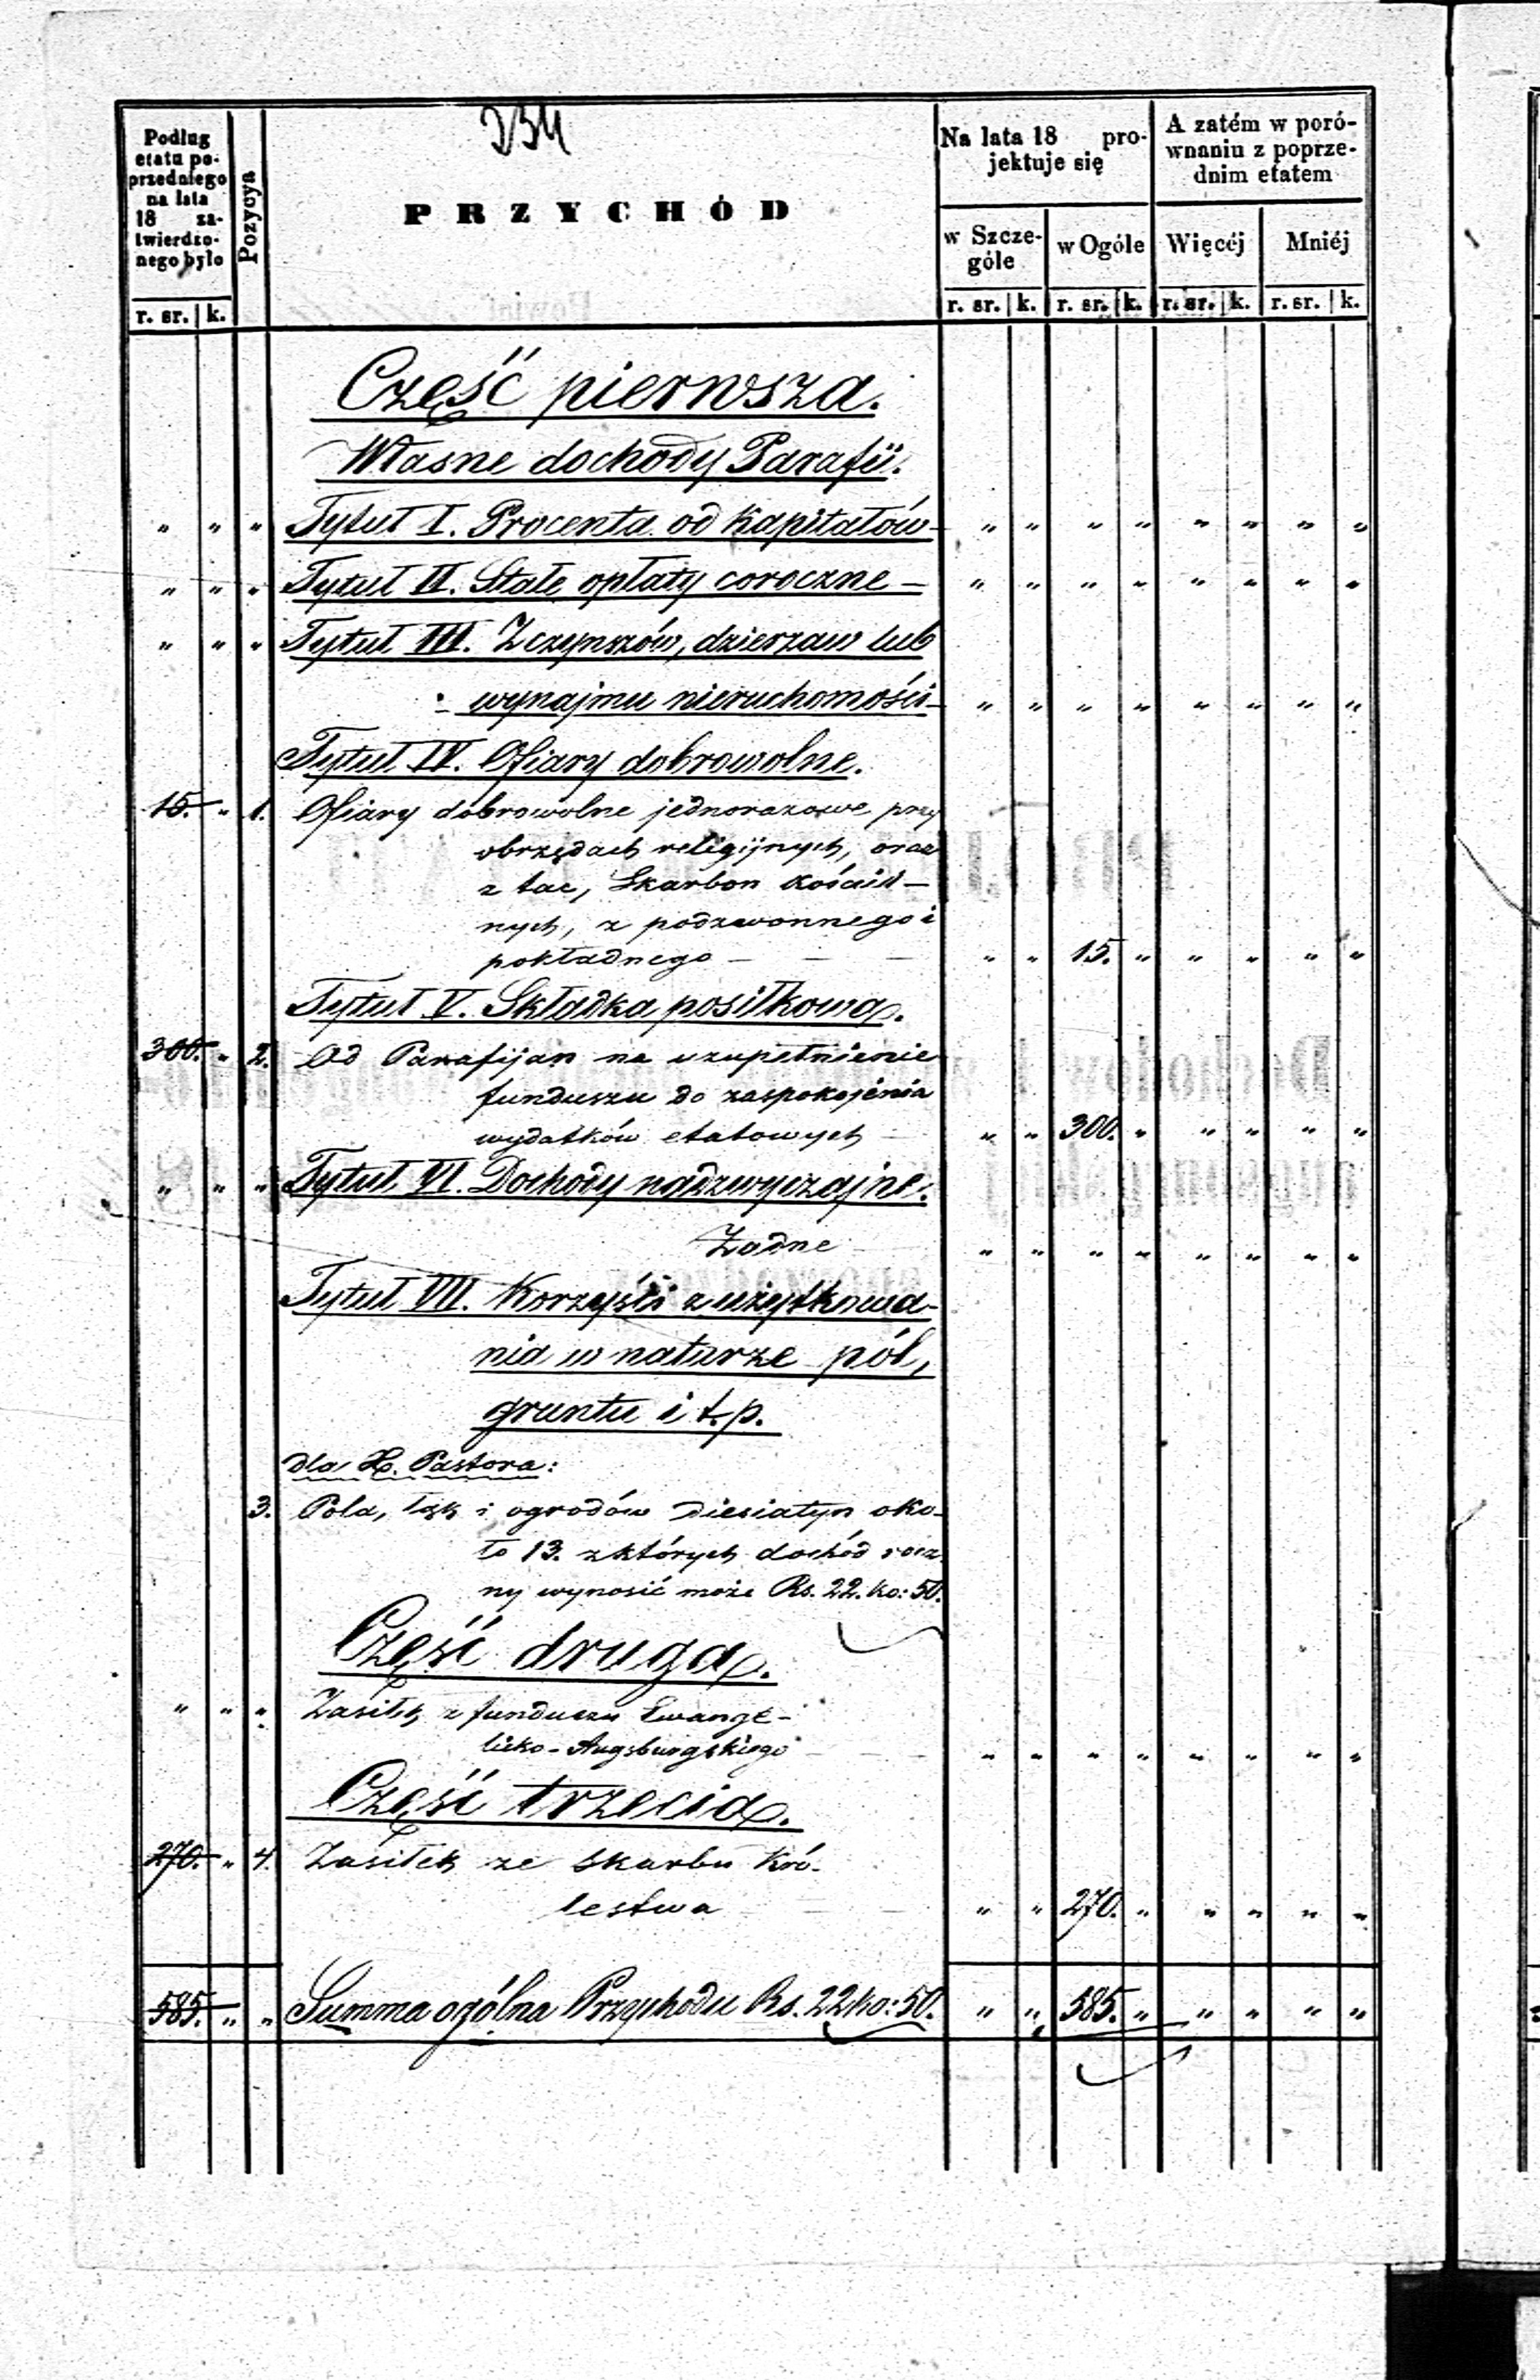 234
Podług
etatu po-
przedniego
na lata
18 za-
twierdzo-
nego było
Pozycya
PRZYCHÓD
Na lata 18 pro-
jektuje się
A zatém w poró-
wnaniu z poprze-
dnim etatem
w Szcze-
góle
w Ogóle
Więcéj
Mniéj
r. sr. k. r. sr. k. r. sr. k. r. sr. k. r. sr. k.
Część pierwsza.
Własne dochody Parafii.
" " " Tytuł I. Procenta od Kapitałów — " " " " " " " "
" " " Tytuł II. Stałe opłaty coroczne — " " " " " " " "
" " " Tytuł III. Z czynszów, dzierzaw lub
wynajmu nieruchomości — " " " " " " " "
Tytuł IV. Ofiary dobrowolne.
15. " 1. Ofiary dobrowolne jednorazowe przy
obrzędach religijnych, oraz
z tac, Skarbon kościel-
nych, z podzwonnego i
pokładnego — — — " " 15. " " " " "
Tytuł V. Składka posiłkowa.
300. " 2. Od Parafijan na uzupełnienie
funduszu do zaspokojenia
wydatków etatowych — " " 300. " " " " "
" " " Tytuł VI. Dochody nadzwyczajne.
Żadne " " " " " " " "
Tytuł VII. Korzyści z użytkowa-
nia w naturze pól,
gruntu i t.p.
dla X. Pastora:
3. Pola, łąk i ogrodów diesiatyn oko-
ło 13. z których dochód rocz
ny wynosić może Rs. 22. ko: 50.
Część druga.
" " " Zasiłek z funduszu Ewange-
licko-Augsburgskiego — — — " " " " " " " "
Część trzecia.
270. " 4. Zasiłek ze Skarbu Kró-
lestwa — — — " " 270. " " " " "
585. " " Summa ogólna Przychodu Rs. 22 ko: 50. " " 585. " " " " "